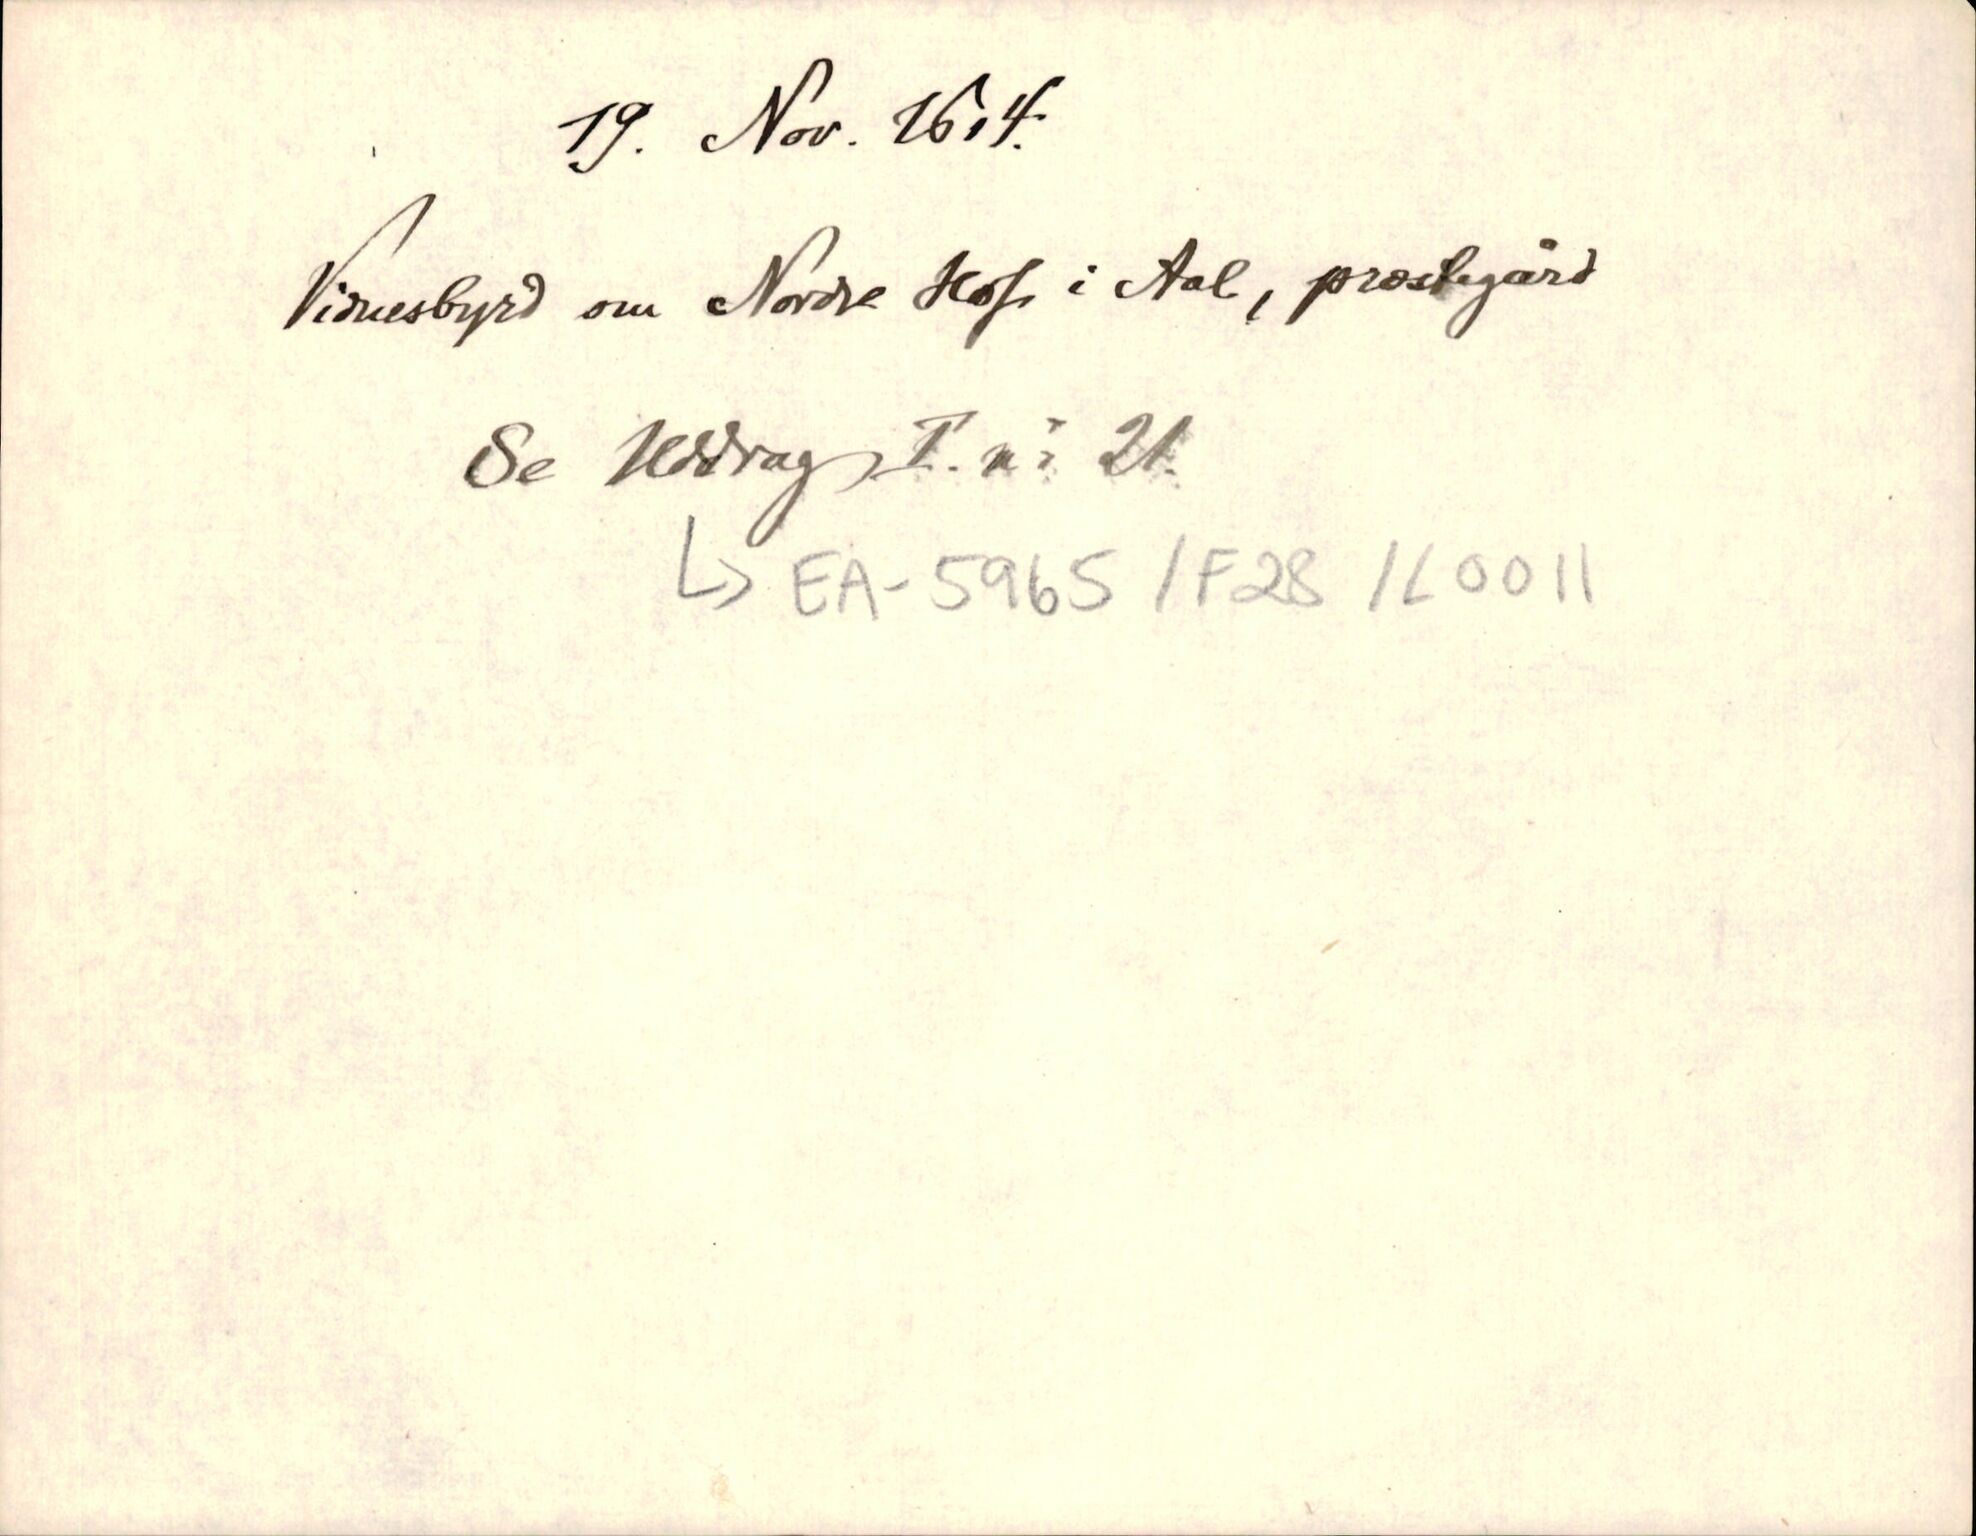 19. Nov. 1614.
Vidnesbyrd om Nordre Hof i Aal, præstegård
Se Uddrag I. nr 21.
↳ EA-5965 /F28 /L0011